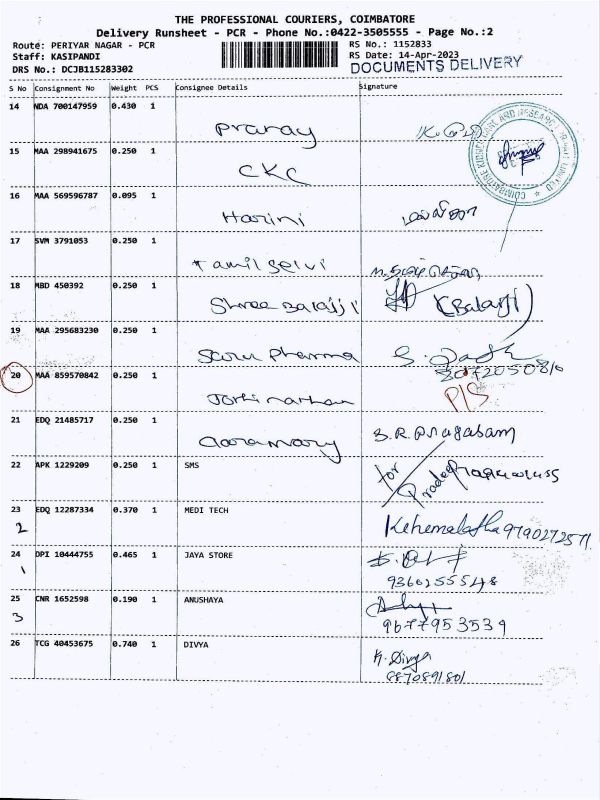 THE PROFESSIONAL COURIERS, COIMBATORE
Delivery Runsheet - PCR - Phone No.:0422-3505555 - Page No.:2
Route: PERIYAR NAGAR - PCR
RS No.: 1152833
Staff: KASIPANDI
RS Date: 14-Apr-2023
DRS No.: DCJB115283302
DOCUMENTS DELIVERY
S No Consignment No Weight PCS Consignee Details Signature
14 NDA 700147959 0.430 1
Pranay
15 MAA 298941675 0.250 1
CKC
16 MAA 569596787 0.095 1
Harini
17 SVM 3791053 0.250 1
Tamil Selvi
18 MBD 450392 0.250 1
Shree Balajji
(Balaji)
19 MAA 295683230 0.250 1
Saru Pharma
20 MAA 859570842 0.250 1
P/S
Jothinathan
21 EDQ 21485717 0.250 1
S.R. Pragasam
22 APK 1229209 0.250 1 SMS
for
23 EDQ 12287334 0.370 1 MEDI TECH
2
Kehemalatha 9790272571
24 DPI 10444755 0.465 1 JAYA STORE
1
9360255548
25 CNR 1652598 0.190 1 ANUSHAYA
3
9677953539
26 TCG 40453675 0.740 1 DIVYA
K. Divya
9870891801